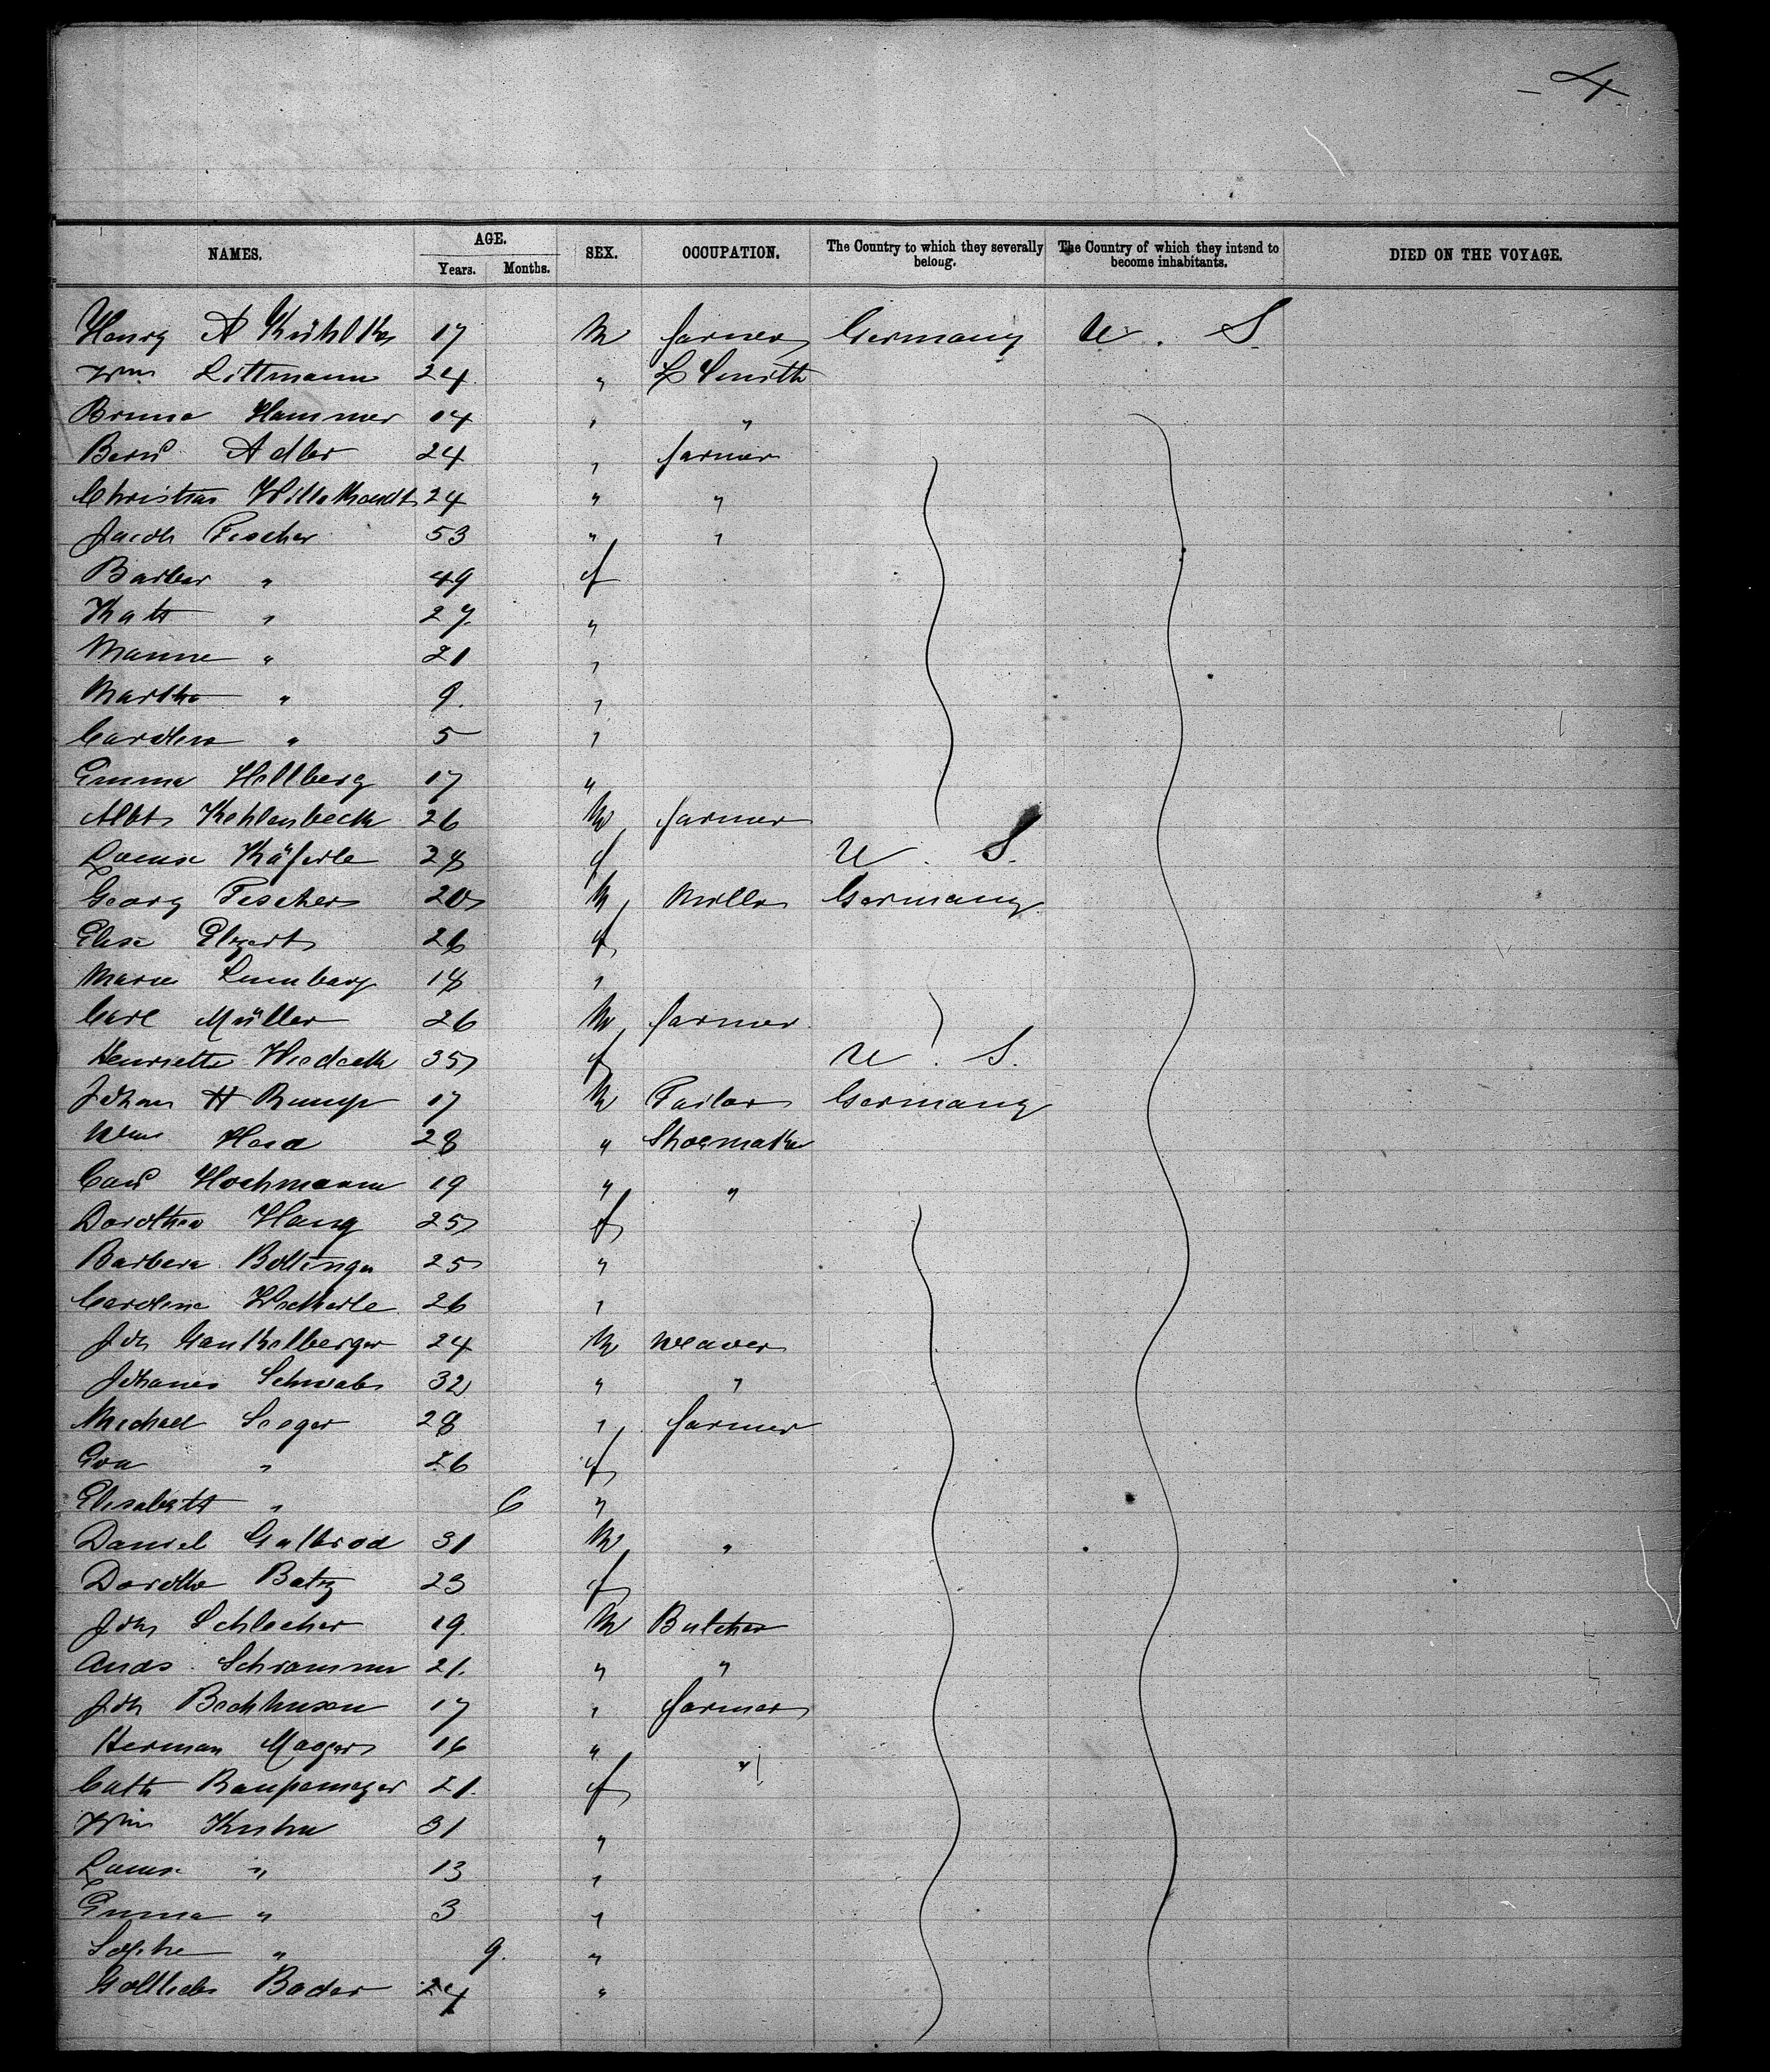 - 4.
NAMES. AGE. Years. Months. SEX. OCCUPATION. The Country to which they severally belong. The Country of which they intend to become inhabitants. DIED ON THE VOYAGE.
Henry A 17 M farmer Germany U. S.
Wm Littmann 24 " L Smith
Bruno Hammer 14 " "
Bernd Adler 24 " farmer
Christian 24 " "
Jacob Fischer 53 " "
Barbar " 49 f
Kath " 27 "
" 21 "
Martha " 9 "
Carolina " 5 "
Emma Hellberg 17 "
Albt Kehlenbeck 26 M farmer
Louise Käferle 28 f U. S.
Georg Fischer 20 M Miller Germany
Elise 26 f
Marie 18 "
Carl Müller 26 M farmer
Henriette 35 f U. S.
Johan H Rump 17 M Tailor Germany
Wm 28 " Shoemaker
Hochmann 19 " "
Dorothea Haug 25 f
Barbara Bollinger 25 "
Carolina 26 "
Joh Gaukelberger 24 M weaver
Johanes Schwab 32 " "
Michael Seeger 28 " farmer
Eva " 26 f
Elisabeth " 6 "
Daniel 31 M "
Dorothe Batz 23 f
Joh Schlecher 19 M Butcher
Ands. Schramm 21 " "
Joh Beckhusen 17 " farmer
Herman 16 " "
Cath 21 f
Wm Kuhn 31 "
Louise " 13 "
Emma " 3 "
Sophie " 9 "
Gottlieb Bader 24 "